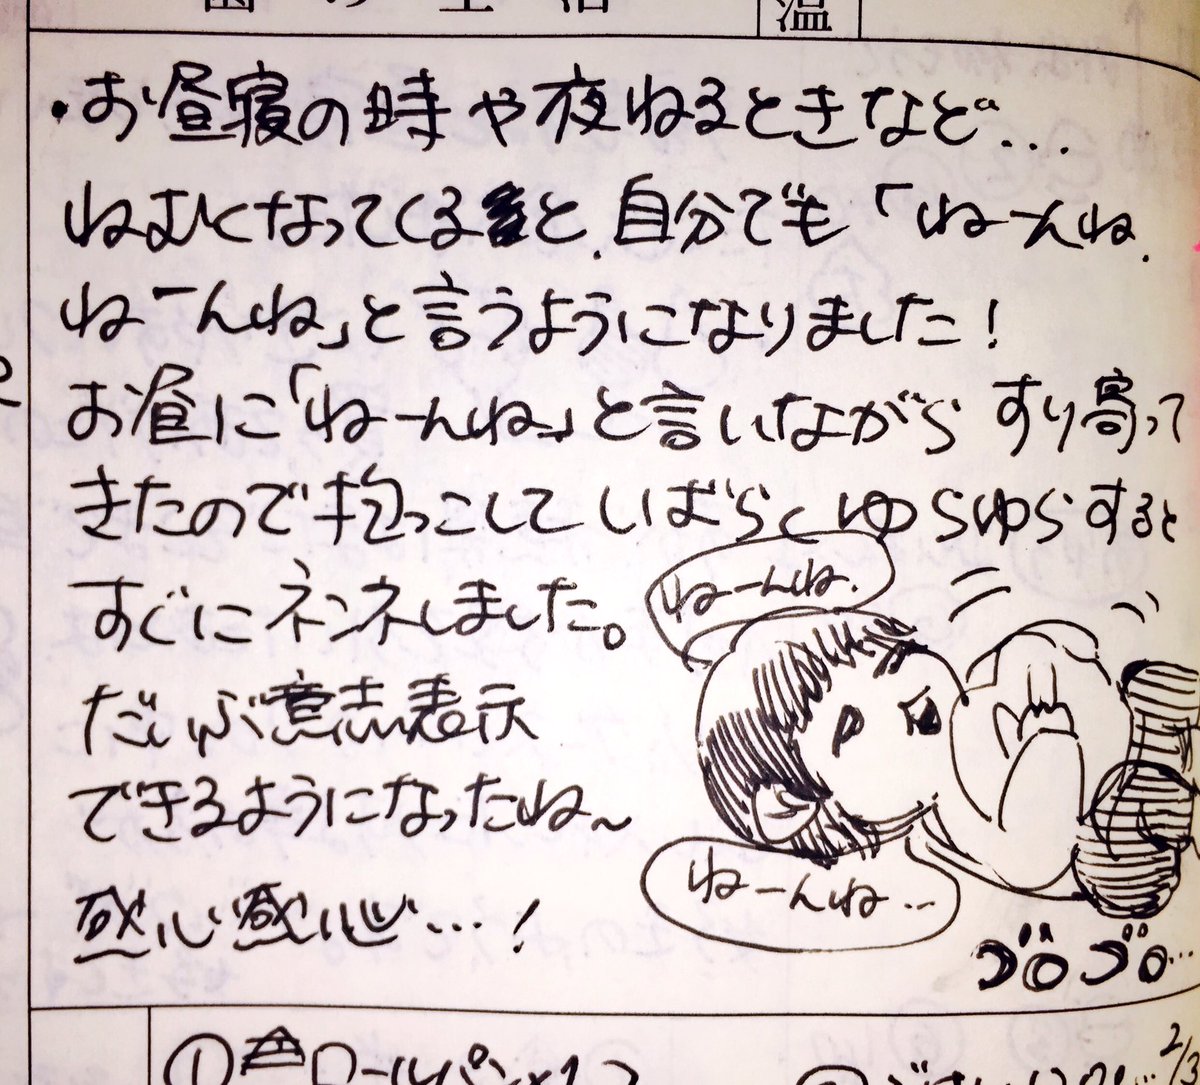 の生活
温
・お昼寝の時や夜ねるときなど…
ねむくなってくると、自分でも「ねーんね、
ねーんね」と言うようになりました！
お昼に「ねーんね」と言いながらすり寄って
きたので抱っこしてしばらくゆらゆらすると
すぐにネンネしました。
だいぶ意志表示
できるようになったね～
感心感心…！
ねーんね、
ねーんね…
ゴロゴロ…
①
ロールパン×1